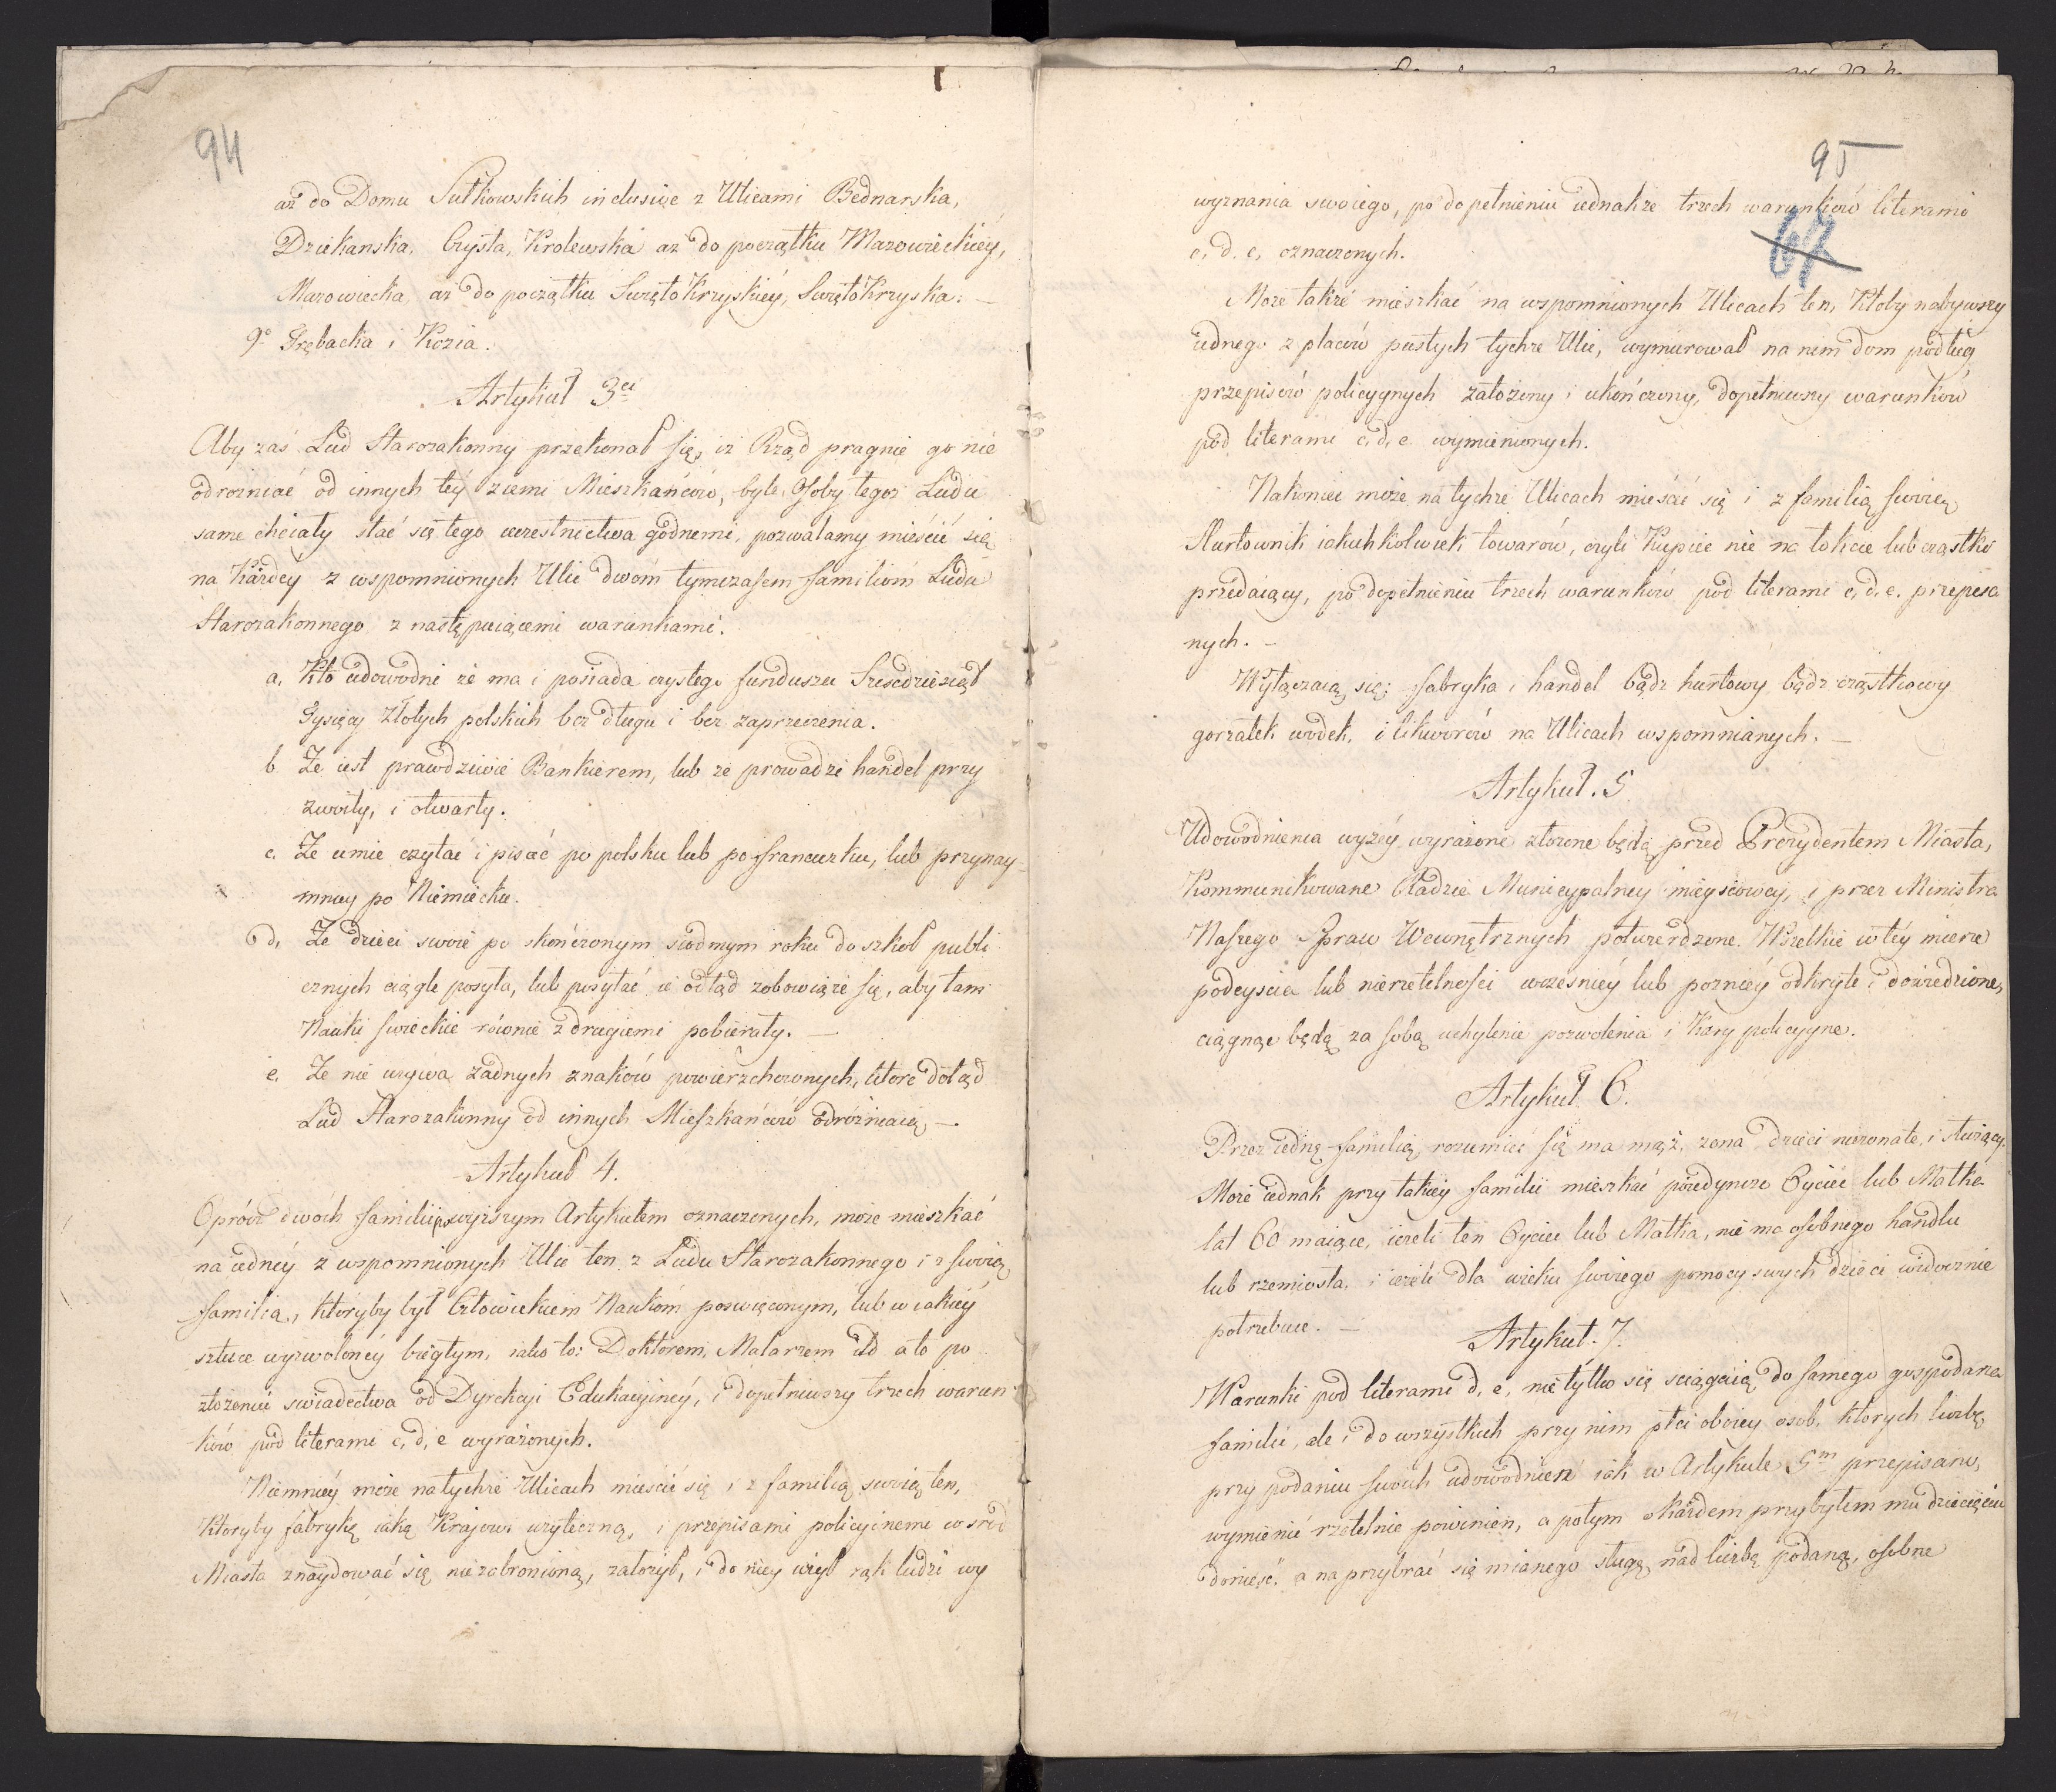 94
aż do Domu Sułkowskich inclusive z Ulicami Bednarska,
Dziekanska, Czysta, Krolewska aż do początku Mazowieckiey,
Mazowiecka, aż do początku SwiętoKrzyskiéy, SwiętoKrzyska. —
9º Trębacka i Kozia.
Artykuł 3ci
Aby zaś Lud Starozakonny przekonał się, iż Rząd pragnie go nie
odrozniać od innych téy ziemi Mieszkańców, byle Osoby tegoż Ludu
same chciały stać się tego uczestnictwa godnemi, pozwalamy mieścić się
na Każdey z wspomnionych Ulic dwom tymczasem familiom Ludu
Starozakonnego z następuiącemi warunkami.
a, Kto udowodni że ma i posiada czystego funduszu Sześcdziesiąt
Tysięcy Złotych polskich bez długu i bez zaprzeczenia.
b Ze iest prawdziwie Bankierem, lub że prowadzi handel przy
zwoity, i otwarty.
c. Ze umie czytać i pisać po polsku lub po francuzku, lub przynay-
mniey po Niemiecku.
d, Ze dzieci swoie po skończonym siodmym roku do szkoł publi
cznych ciągle posyła, lub posyłać ie odtąd zobowiąże się, aby tam
Nauki swieckie równie z drugiemi pobierały. —
e. Ze nie używa żadnych znaków powierzchownych, ktore dotąd
Lud Starozakonny od innych Mieszkańców odróżniaią, —
Artykuł 4.
Oprócz dwóch familii powyższym Artykułem oznaczonych, może mieszkać
na iednéy z wspomnionych Ulic ten z Ludu Starozakonnego i z swoią
familią, ktoryby był Człowiekiem Naukom poswięconym, lub w iakiéy
sztuce wyzwolonéy biegłym, iako to: Doktorem, Malarzem itd a to po
złożeniu swiadectwa od Dyrekcyi Edukacyinéy, i dopełniwszy trzech warun-
ków pod literami c, d, e wyrażonych.
Niemniéy może na tychże Ulicach mieścić się i z familią swoią ten,
Ktoryby fabrykę iaką Krajowi użyteczną, i przepisami policyinemi w śród
Miasta znaydować się niezabronioną, założył, i do niey użył rąk ludzi wy
95
67
wyznania swoiego, po dopełnieniu iednakże trzech warunków literami
c, d, e, oznaczonych.
Może także mieszkać na wspomnionych Ulicach ten, Ktoby nabywszy
iednego z placów pustych tychże Ulic, wymurował na nim dom podług
przepisów policyynych założony i ukończony, dopełniwszy warunków
pod literami c, d, e. wymienionych.
Nakoniec może na tychże Ulicach mieścić się i z familią swoią
Hurtownik iakichkolwiek towarów, czyli Kupiec nie na łokcie lub cząstki
przedaiący, po dopełnieniu trzech warunków pod literami c, d, e. przepisa
nych. —
Wyłączaią się: fabryka i handel bądź hurtowy bądź cząstkowy
gorzałek wodek, i likworów na Ulicach wspomnianych. —
Artykuł. 5
Udowodnienia wyżéy wyrażone złożone będą przed Prezydentem Miasta,
Kommunikowane Radzie Municypalney mieyscowey, i przez Ministra
Naszego Spraw Wewnętrznych potwierdzone. Wszelkie w téy mierze
podeyscia lub nierzetelności wcześniéy lub pozniéy odkryte i dowiedzione,
ciągnąc będą za sobą uchylenie pozwolenia i Kary policyyne.
Artykuł 6.
Przez iednę familią rozumieć się ma mąż, żona dzieci nieżonate, i słuzący.
Może iednak przy takiéy familii mieszkać poiedynczo Oyciec lub Matka
lat 60 maiące, ieżeli ten Oyciec lub Matka, nie ma osobnego handlu
lub rzemiosła, i ieżeli dla wieku swoiego pomocy swych dzieci widocznie
potrzebuie. —
Artykuł. 7.
Warunki pod literami d, e, nie tylko się sciągaią do samego gospodarza
familii, ale i do wszystkich przy nim płci oboiey osob, ktorych liczbę
przy podaniu swoich udowodnien iak w Artykule 5m przepisano,
wymienić rzetelnie powinien, a potym o każdem przybyłem mu dziecięciu
donieść. a na przybrać się mianego sługę, nad liczbę podaną, osobne